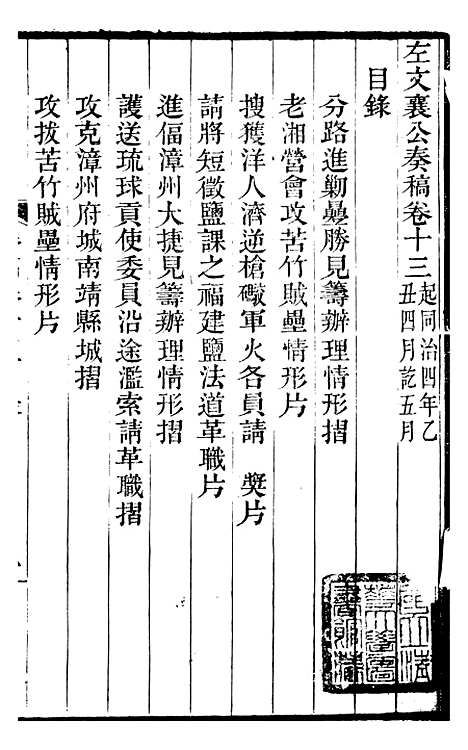 左文襄公奏稿卷十三起同治四年乙
丑四月訖五月
目錄
分路進勦疊勝見籌辦理情形摺
老湘營會攻苦竹賊壘情形片
搜獲洋人濟逆槍礮軍火各員請　獎片
請將短徵鹽課之福建鹽法道革職片
進偪漳州大捷見籌辦理情形摺
護送琉球貢使委員沿途濫索請革職摺
攻克漳州府城南靖縣城摺
攻拔苦竹賊壘情形片